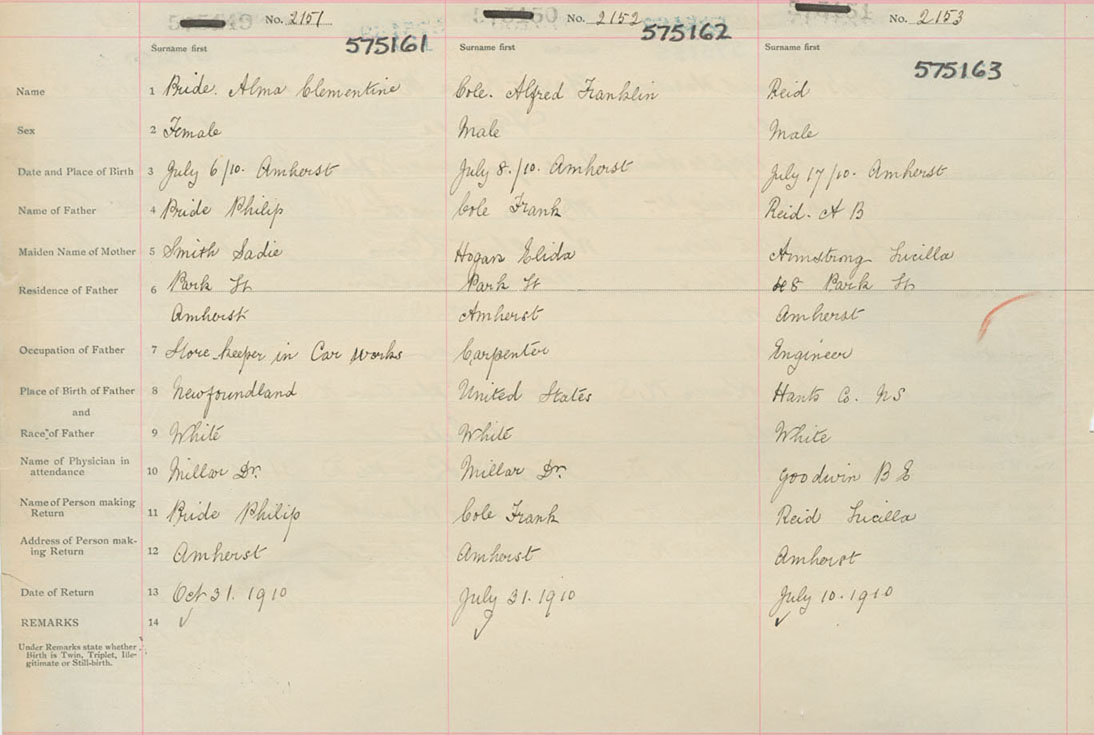 No. 2151 No. 2152 No. 2153
575161 575162 575163
Surname first Surname first Surname first
Name 1 Bride. Alma Clementine Cole. Alfred Franklin Reid
Sex 2 Female Male Male
Date and Place of Birth 3 July 6/10. Amherst July 8./10. Amherst July 17/10. Amherst
Name of Father 4 Bride Philip Cole Frank Reid. A B
Maiden Name of Mother 5 Smith Sadie Hogan Elida Armstrong Lucilla
Residence of Father 6 Park St Park St 8 Park St
Amherst Amherst Amherst
Occupation of Father 7 Store keeper in Car Works Carpenter Engineer
Place of Birth of Father 8 Newfoundland United States Hants Co. NS
and
Race of Father 9 White White White
Name of Physician in
attendance 10 Millar Dr. Millar Dr. Goodwin B E
Name of Person making
Return 11 Bride Philip Cole Frank Reid Lucilla
Address of Person mak-
ing Return 12 Amherst Amherst Amherst
Date of Return 13 Oct 31. 1910 July 31. 1910 July 10. 1910
REMARKS 14 ✓ ✓ ✓
Under Remarks state whether
Birth is Twin, Triplet, Ille-
gitimate or Still-birth.